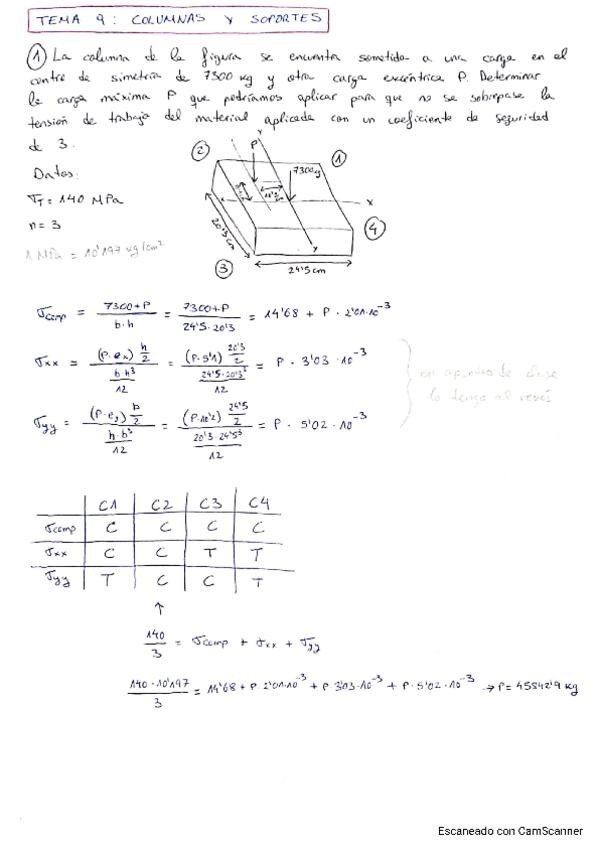 TEMA 9: COLUMNAS Y SOPORTES
① La columna de la figura se encuentra sometida a una carga en el
centro de simetría de 7300 kg y otra carga excéntrica P. Determinar
la carga máxima P que podríamos aplicar para que no se sobrepase la
tensión de trabajo del material aplicada con un coeficiente de seguridad
de 3.
Datos:
σT = 140 MPa
n = 3
1 MPa = 10'197 kg/cm²
② ① ③ ④
P 7300 kg
x y
20'3 cm
24'5 cm
σcomp = (7300+P)/(b·h) = (7300+P)/(24'5·20'3) = 14'68 + P · 2'01·10⁻³
σxx = ((P·ex) h/2)/((b·h³)/12) = ((P·5'1) 20'3/2)/((24'5·20'3³)/12) = P · 3'03 · 10⁻³
σyy = ((P·ey) b/2)/((h·b³)/12) = ((P·10'2) 24'5/2)/((20'3·24'5³)/12) = P · 5'02 · 10⁻³
en apuntes de clase
lo tengo al revés
C1 C2 C3 C4
σcomp C C C C
σxx C C T T
σyy T C C T
↑
140/3 = σcomp + σxx + σyy
(140·10'197)/3 = 14'68 + P 2'01·10⁻³ + P 3'03·10⁻³ + P · 5'02·10⁻³ → P = 45842'9 kg
Escaneado con CamScanner